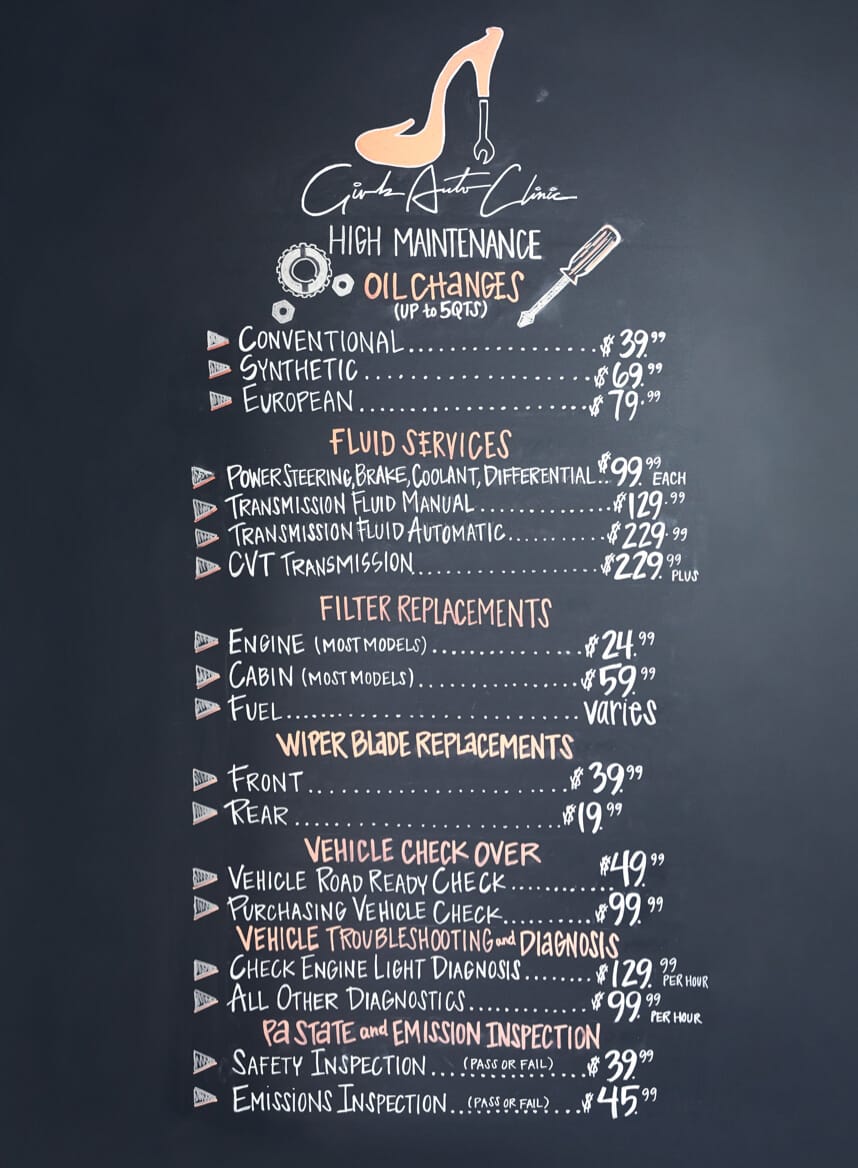 Girls Auto Clinic
HIGH MAINTENANCE
OIL CHANGES
(UP to 5QTS)
CONVENTIONAL....................$39.99
SYNTHETIC........................$69.99
EUROPEAN........................$79.99
FLUID SERVICES
POWER STEERING, BRAKE, COOLANT, DIFFERENTIAL..$99.99 EACH
TRANSMISSION FLUID MANUAL..............$129.99
TRANSMISSION FLUID AUTOMATIC..........$229.99
CVT TRANSMISSION....................$229.99 PLUS
FILTER REPLACEMENTS
ENGINE (MOST MODELS)................$24.99
CABIN (MOST MODELS)................$59.99
FUEL..............................varies
WIPER BLADE REPLACEMENTS
FRONT..........................$39.99
REAR..........................$19.99
VEHICLE CHECK OVER
VEHICLE ROAD READY CHECK............$49.99
PURCHASING VEHICLE CHECK..........$99.99
VEHICLE TROUBLESHOOTING and DIAGNOSIS
CHECK ENGINE LIGHT DIAGNOSIS........$129.99 PER HOUR
ALL OTHER DIAGNOSTICS..............$99.99 PER HOUR
PA STATE and EMISSION INSPECTION
SAFETY INSPECTION...(PASS OR FAIL)....$39.99
EMISSIONS INSPECTION..(PASS OR FAIL)...$45.99